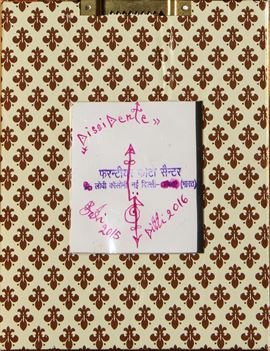 «Dissidente»
फ्रन्टीयर फोटो सैन्टर
लोधी कालोनी नई दिल्ली- (भारत)
2015
Dilli 2016